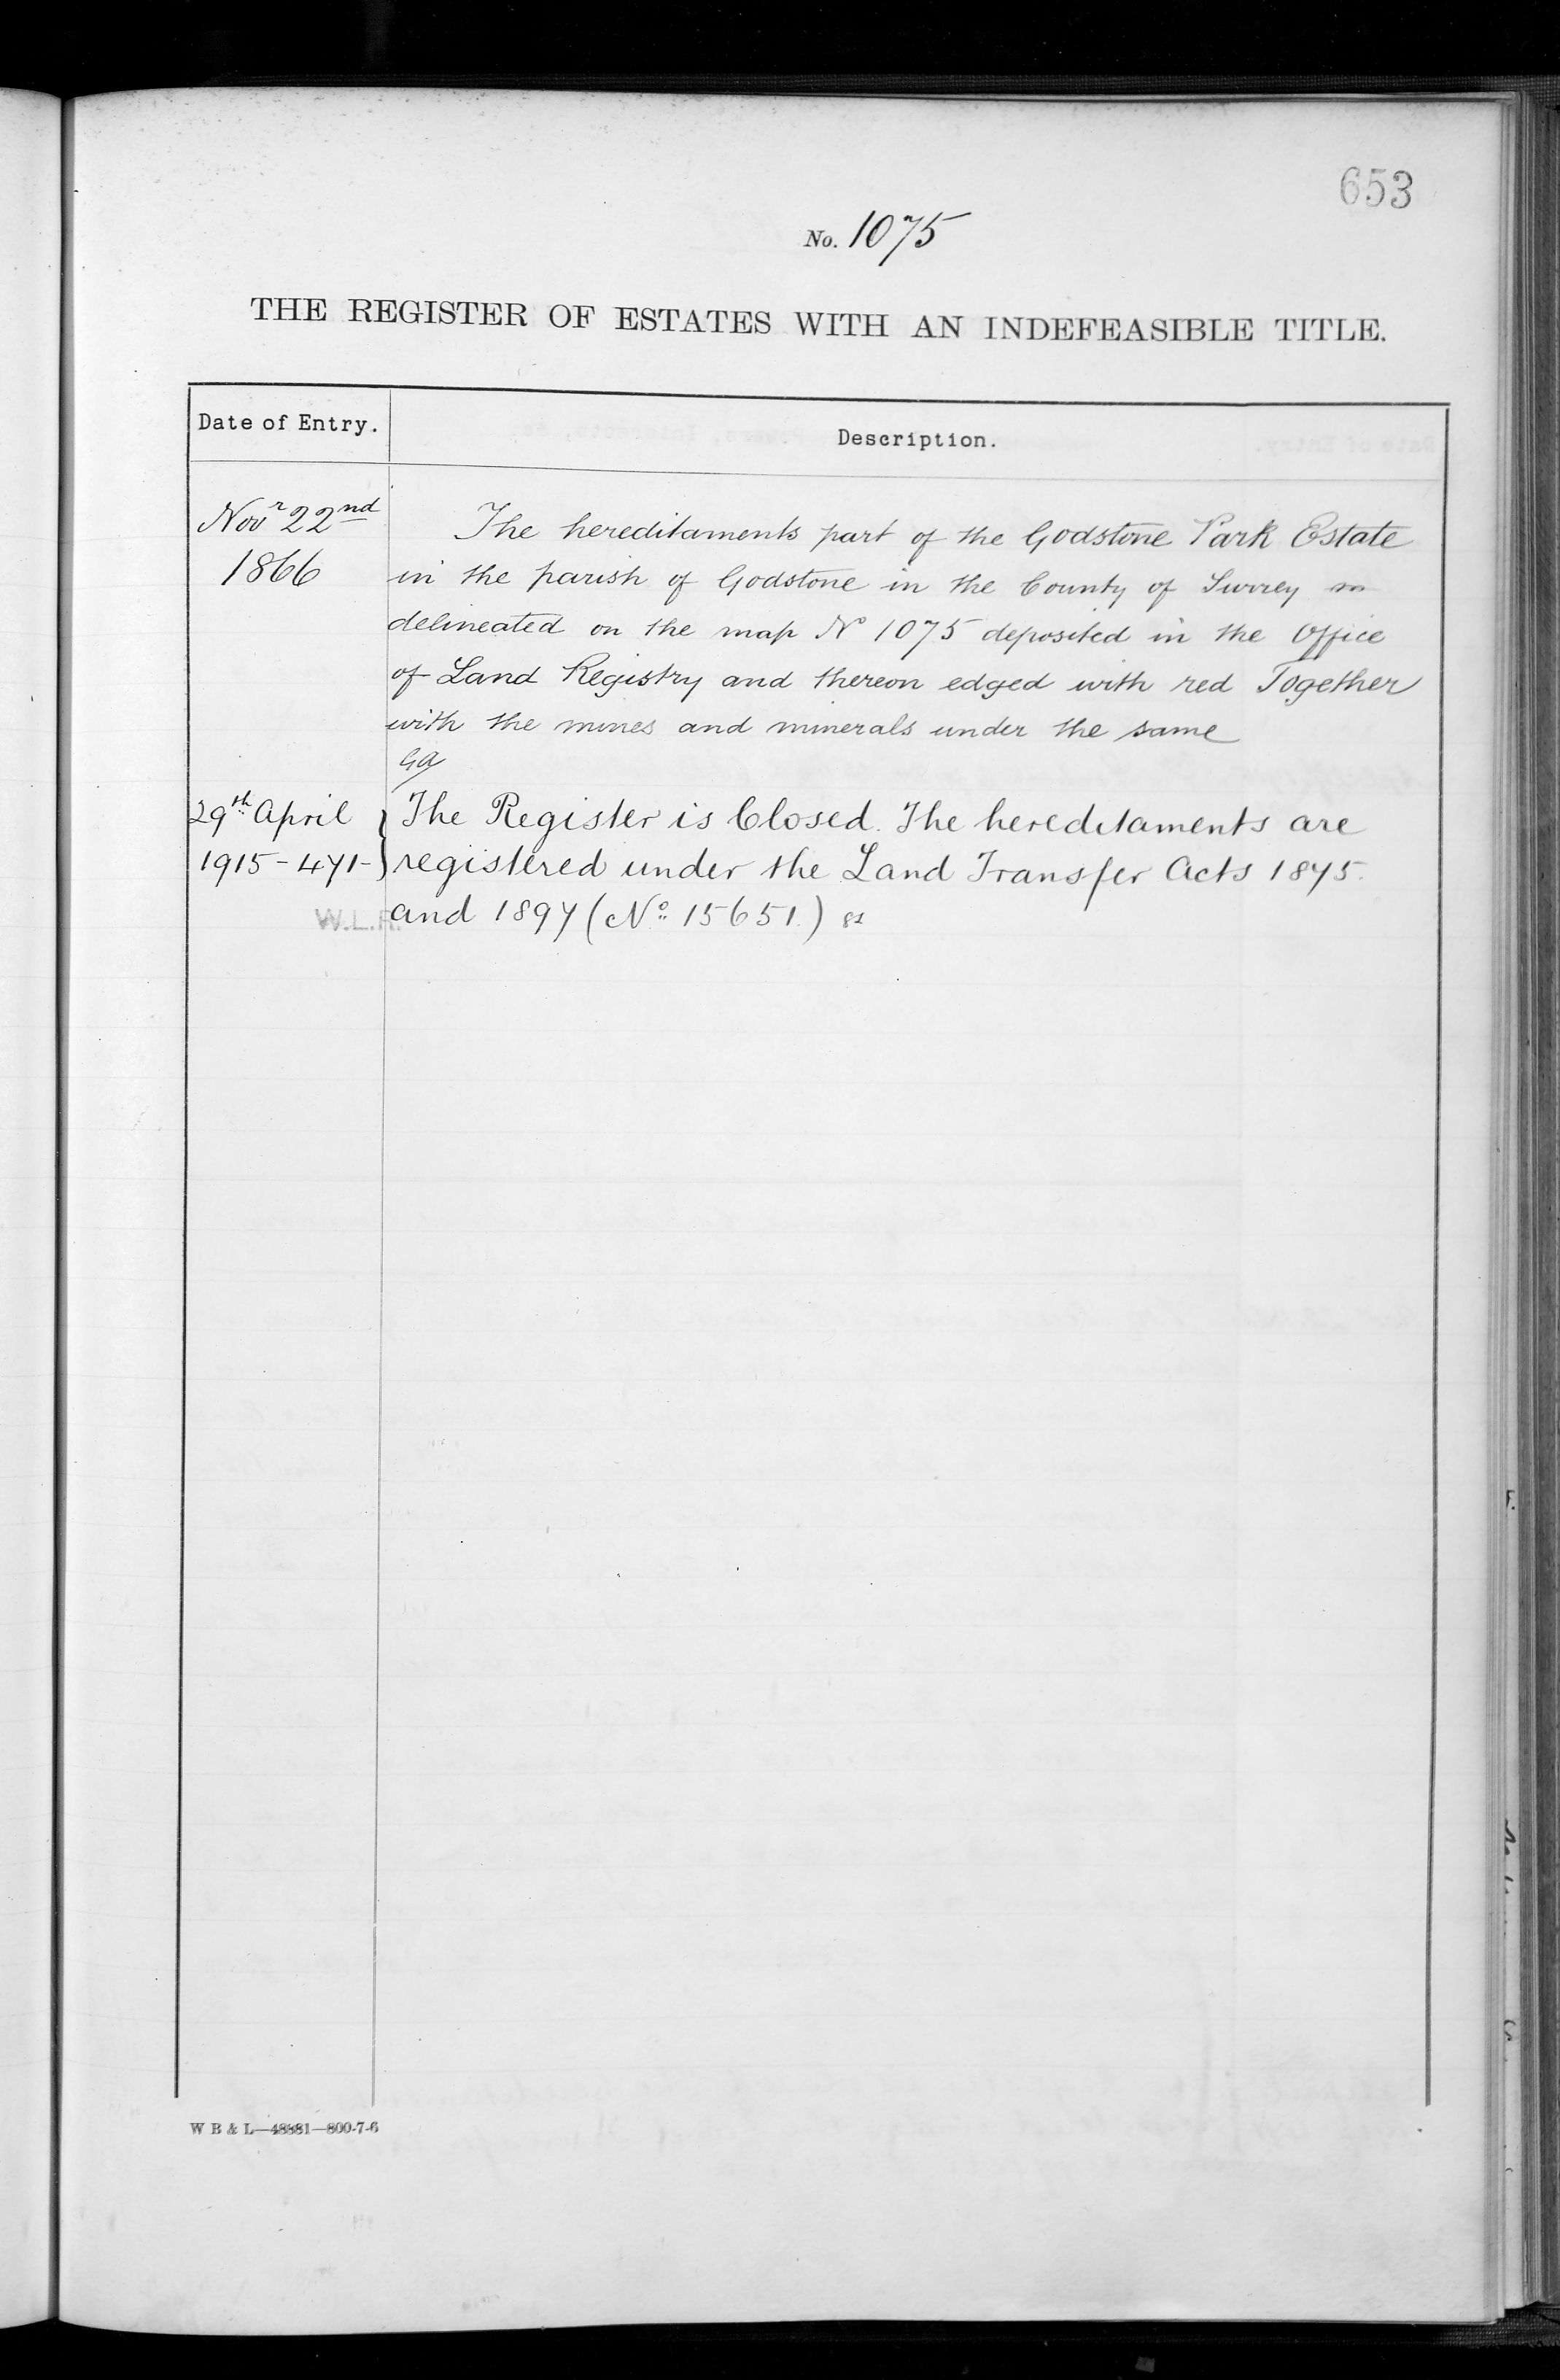 653
No. 1075
THE REGISTER OF ESTATES WITH AN INDEFEASIBLE TITLE.
Date of Entry.
Description.
Novr 22nd
1866
The hereditaments part of the Godstone Park Estate
in the parish of Godstone in the County of Surrey
delineated on the map No 1075 deposited in the Office
of Land Registry and thereon edged with red Together
with the mines and minerals under the same
GA
29th April
1915-471-
The Register is Closed. The hereditaments are
registered under the Land Transfer Acts 1875.
and 1897 (No 15651.)
W.L.R.
W B & L—48881—800-7-6